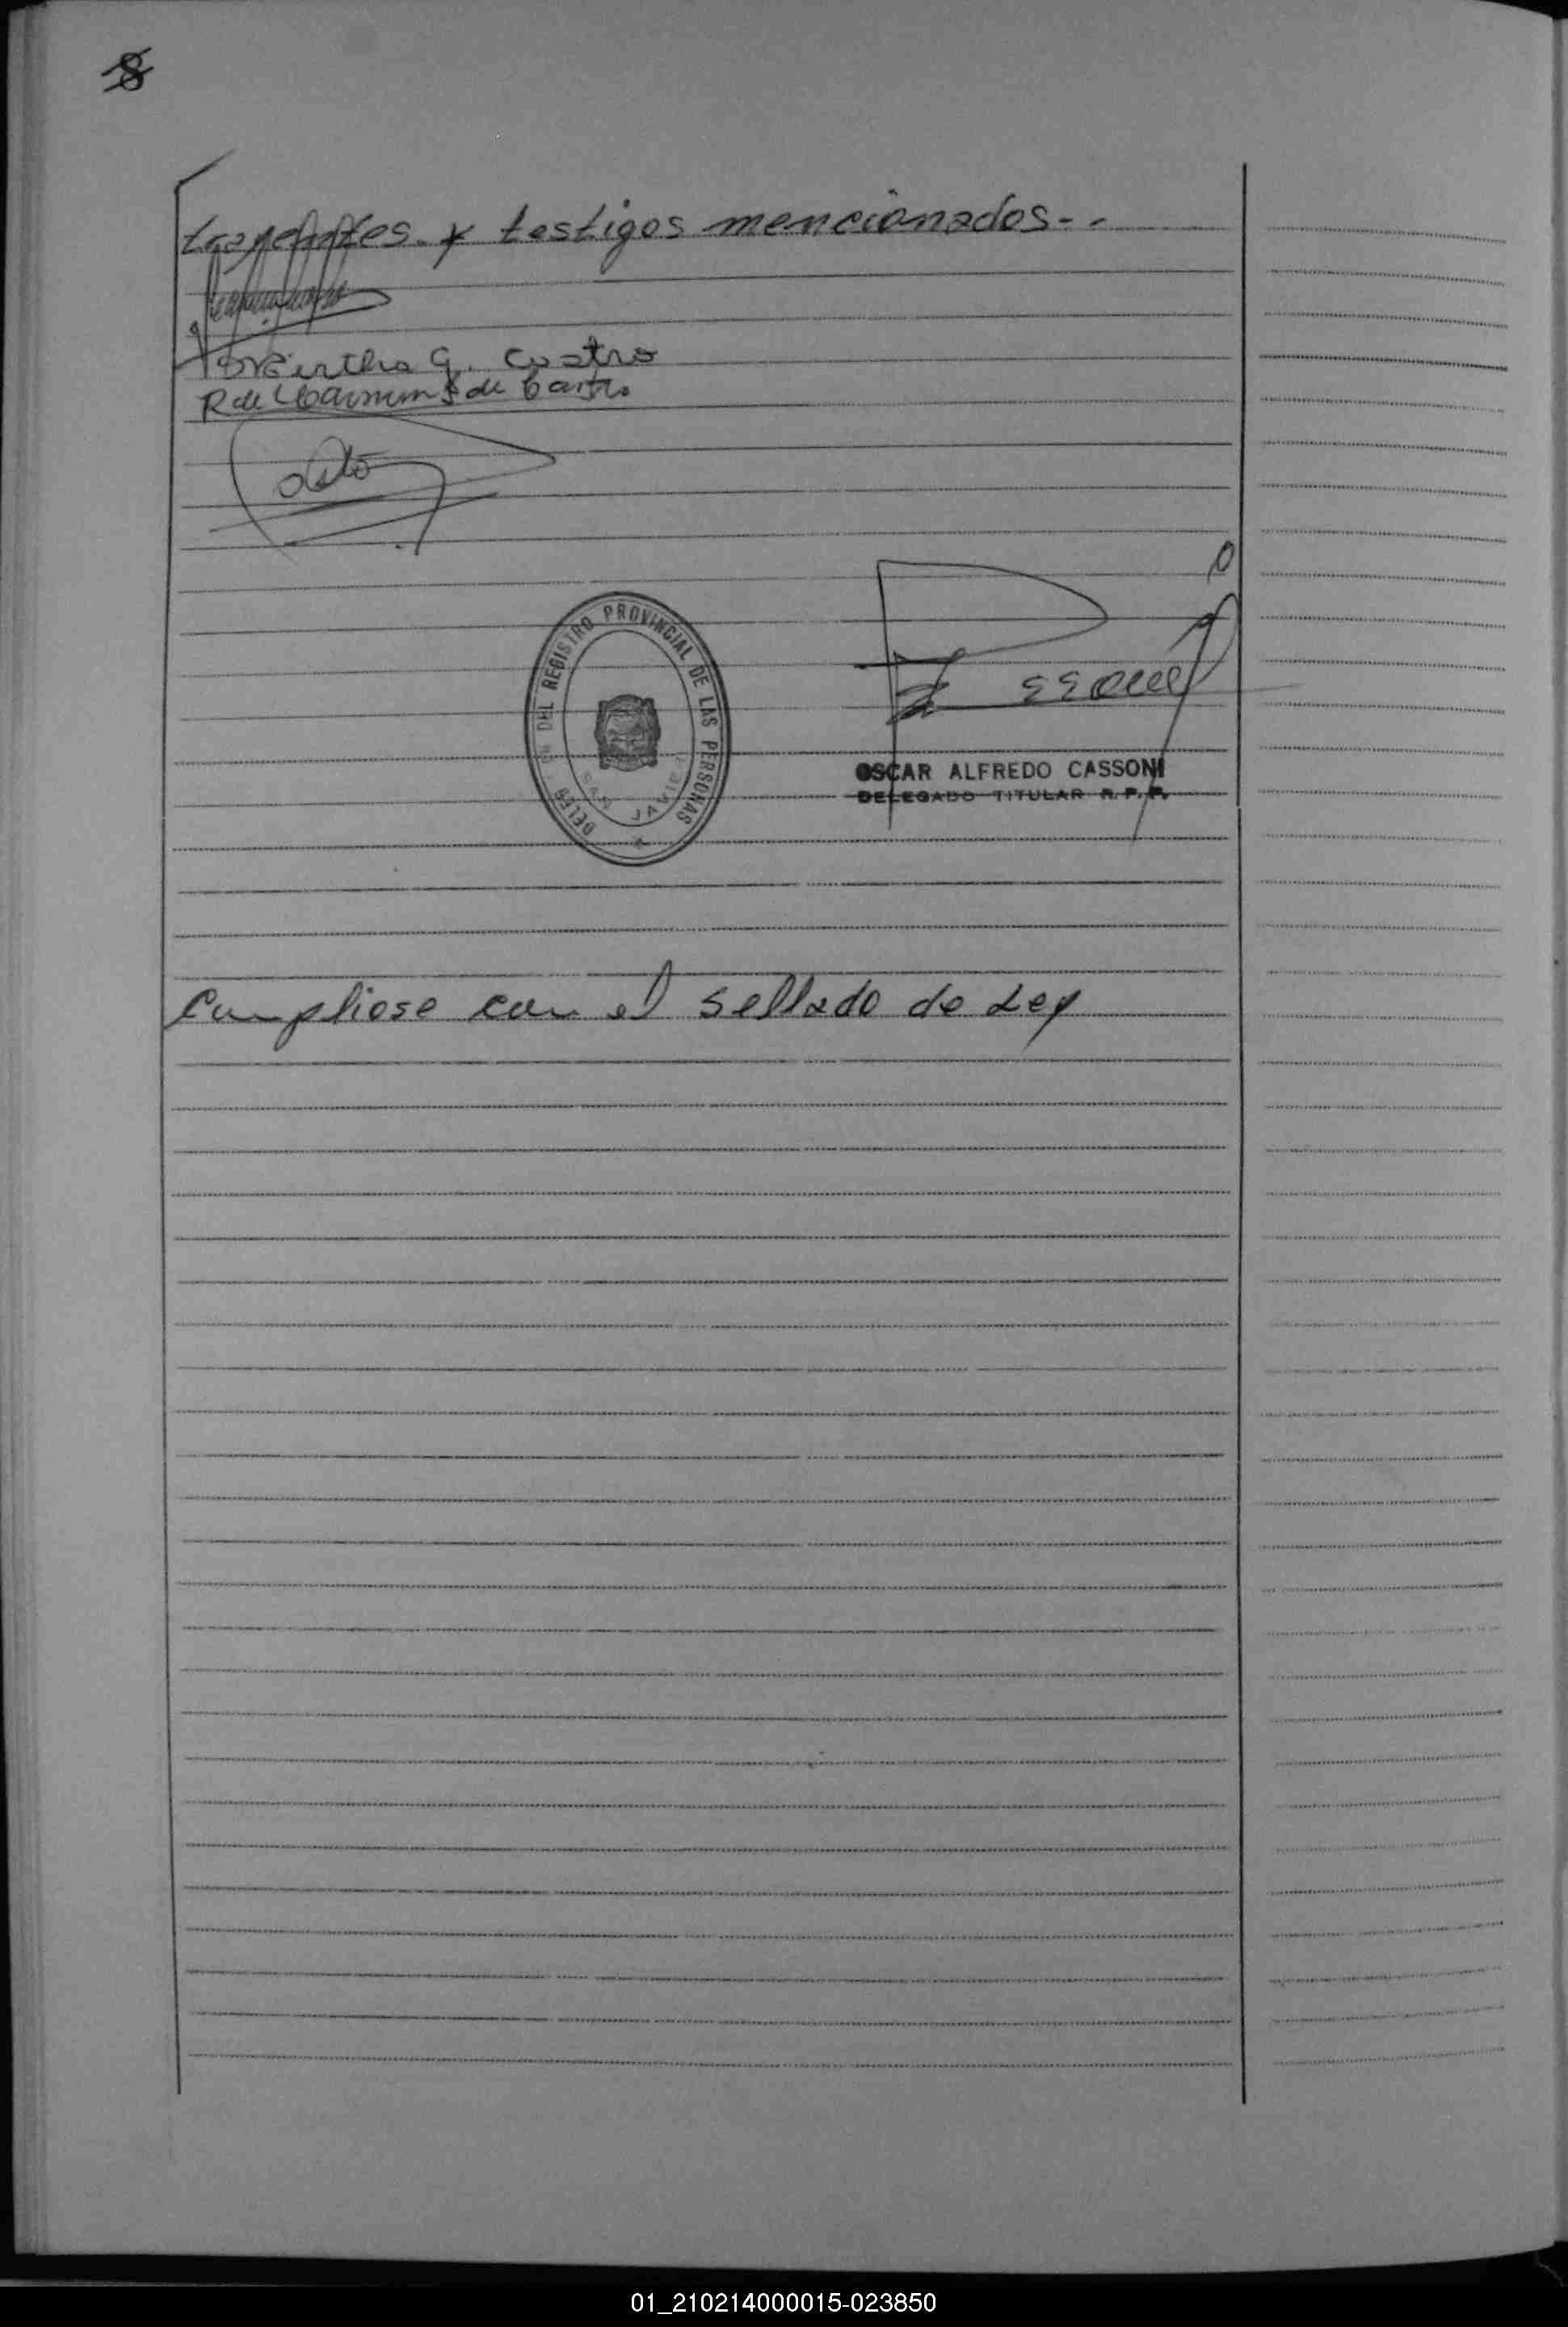 8
trayentes y testigos mencionados--
Mirtha G. Castro
R del Carmen S de Castro
DEL REGISTRO PROVINCIAL DE LAS PERSONAS
SAN JAVIER
OSCAR ALFREDO CASSONI
DELEGADO TITULAR R.P.P.
Cumpliose con el sellado de Ley
01_210214000015-023850